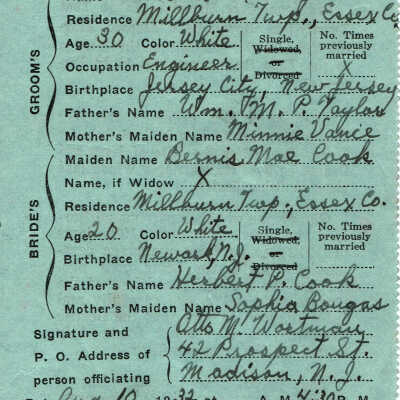 Residence Millburn Twp., Essex Co.
Age 30 Color White Single, Widowed, or Divorced No. Times previously married X
Occupation Engineer
Birthplace Jersey City, New Jersey
Father's Name Wm. M. P. Taylor
Mother's Maiden Name Minnie Vance
GROOM'S
Maiden Name Bernis Mae Cook
Name, if Widow X
Residence Millburn Twp., Essex Co.
Age 20 Color White Single, Widowed, or Divorced No. Times previously married
Birthplace Newark, N.J.
Father's Name Herbert P. Cook
Mother's Maiden Name Sophia Bougas
BRIDE'S
Signature and Otto M. Wortman
P. O. Address of 42 Prospect St.
person officiating Madison, N.J.
Aug 10 1932 at A. M. 4:30 P. M.